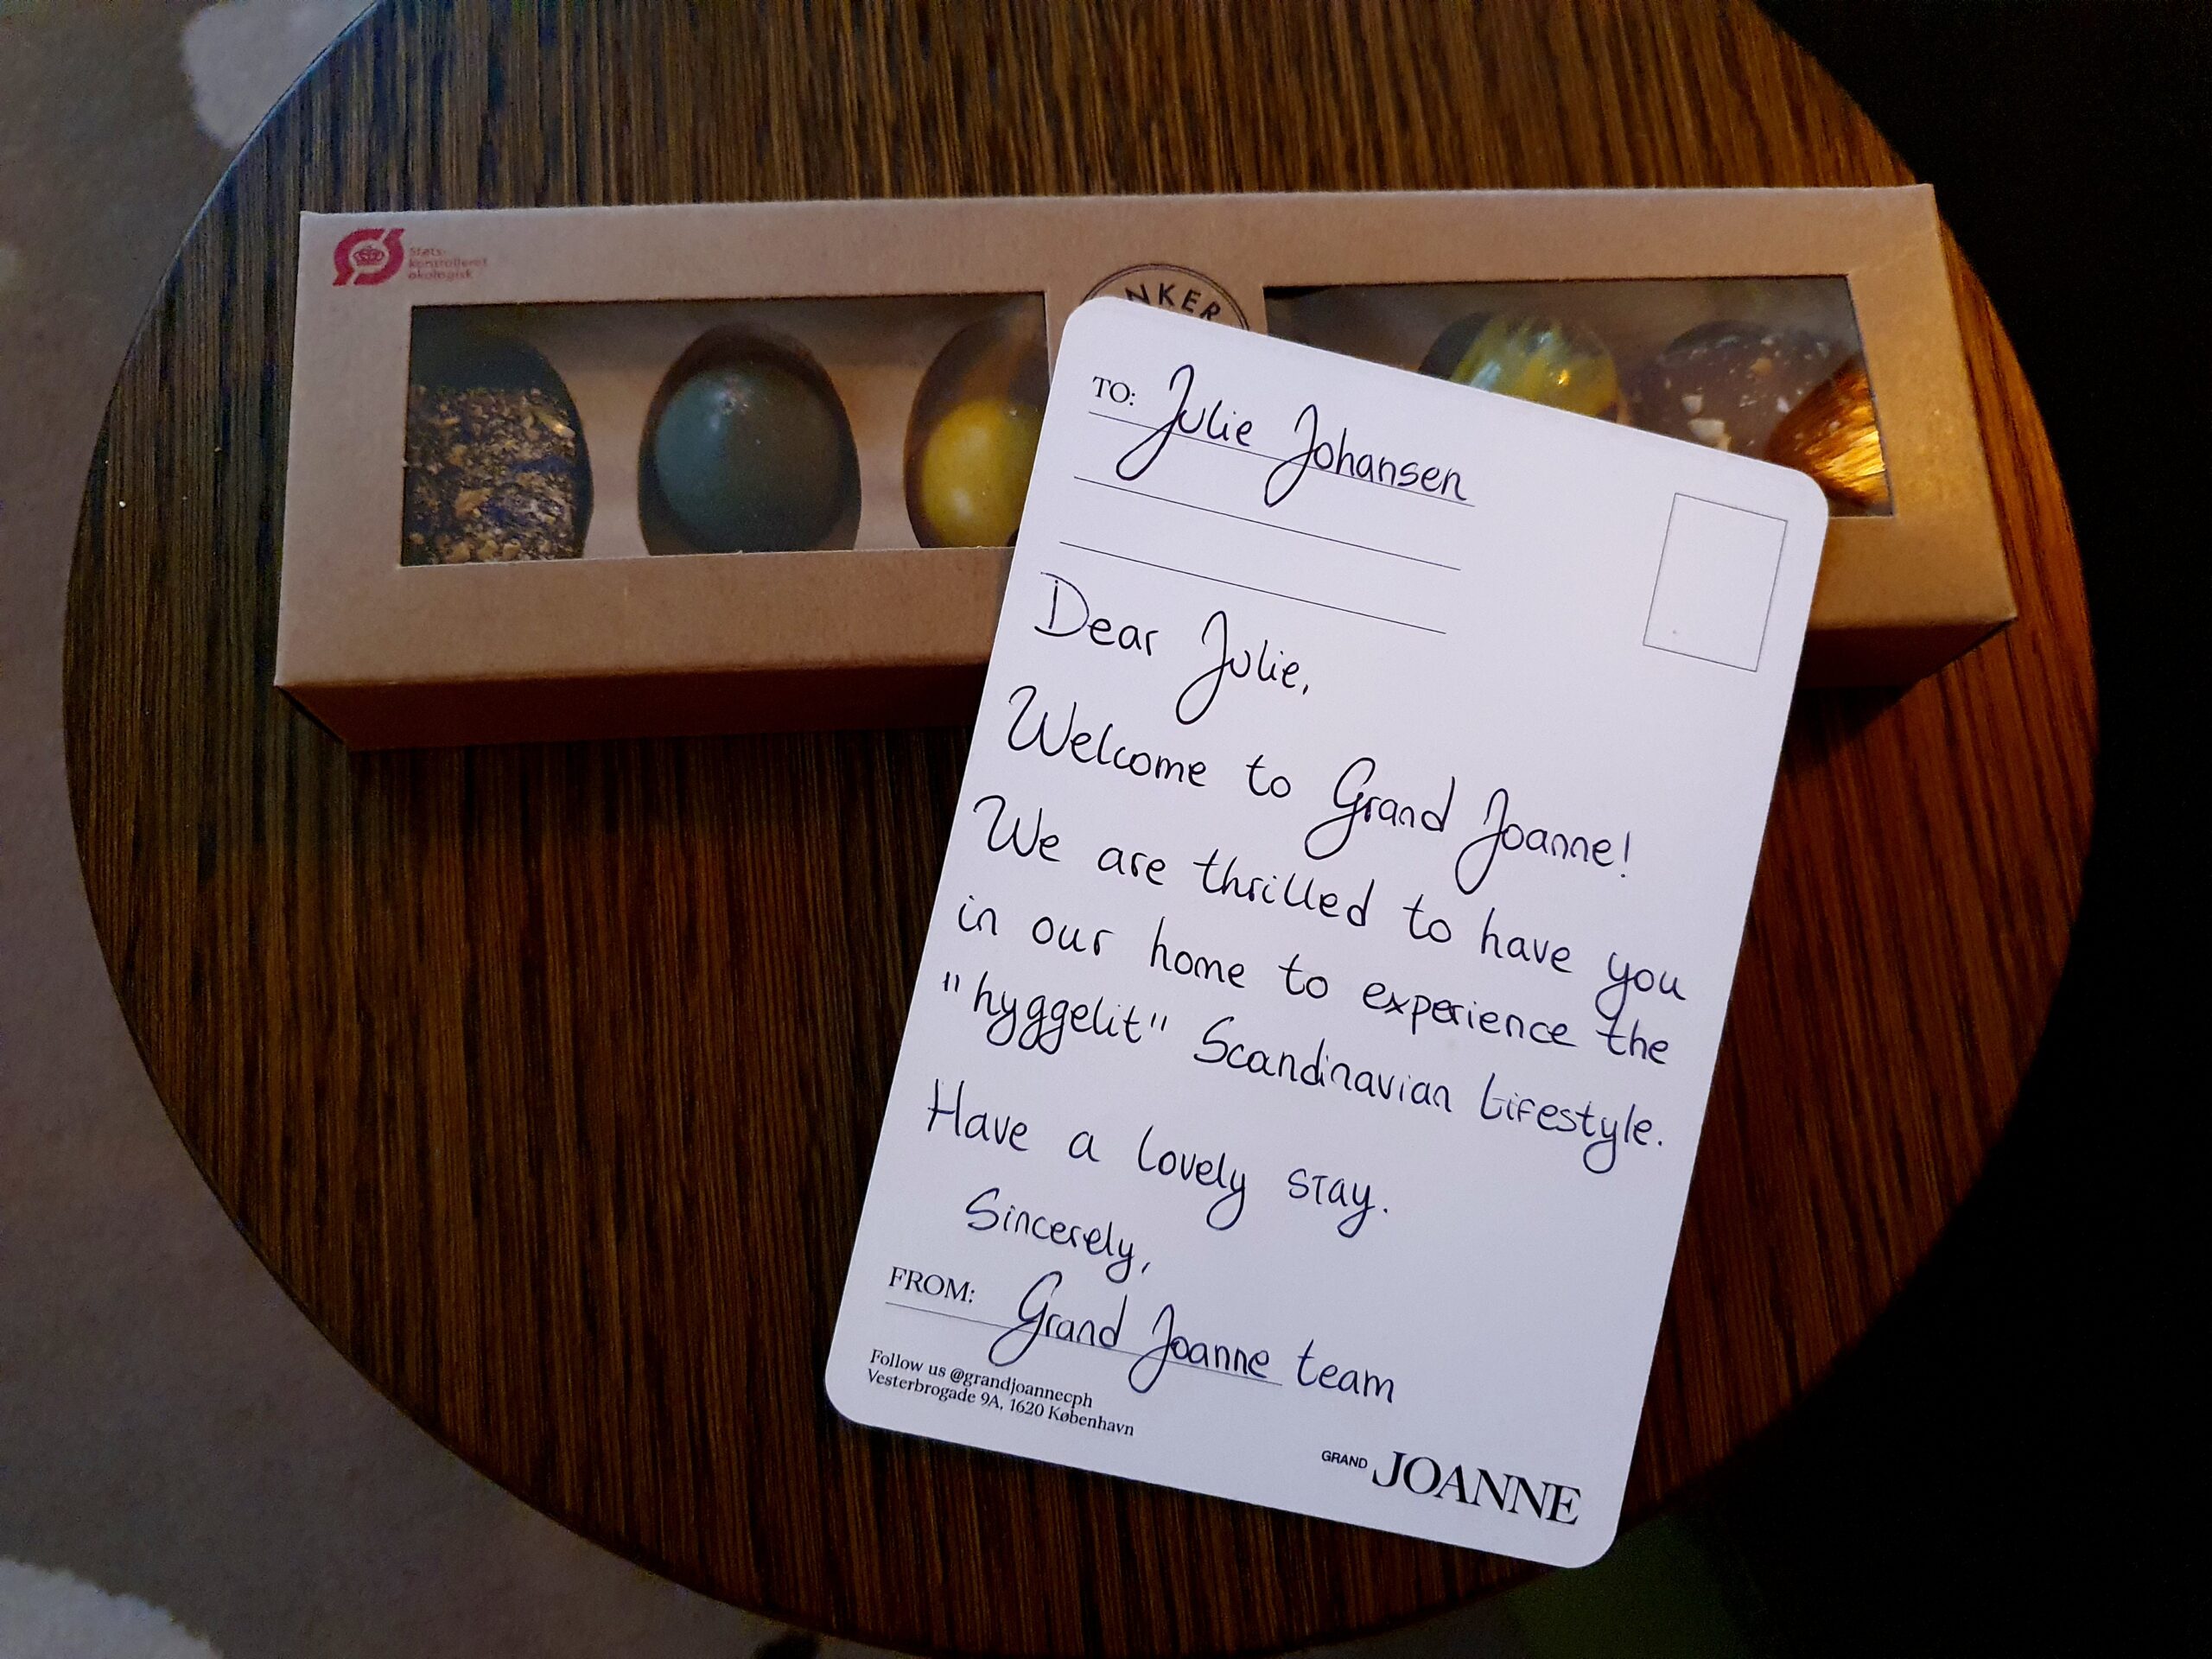 Stats-
kontrolleret
økologisk
NKER
TO: Julie Johansen
Dear Julie,
Welcome to Grand Joanne!
We are thrilled to have you
in our home to experience the
"hyggelit" Scandinavian Lifestyle.
Have a lovely stay.
Sincerely,
FROM: Grand Joanne team
Follow us @grandjoannecph
Vesterbrogade 9A, 1620 København
GRAND JOANNE